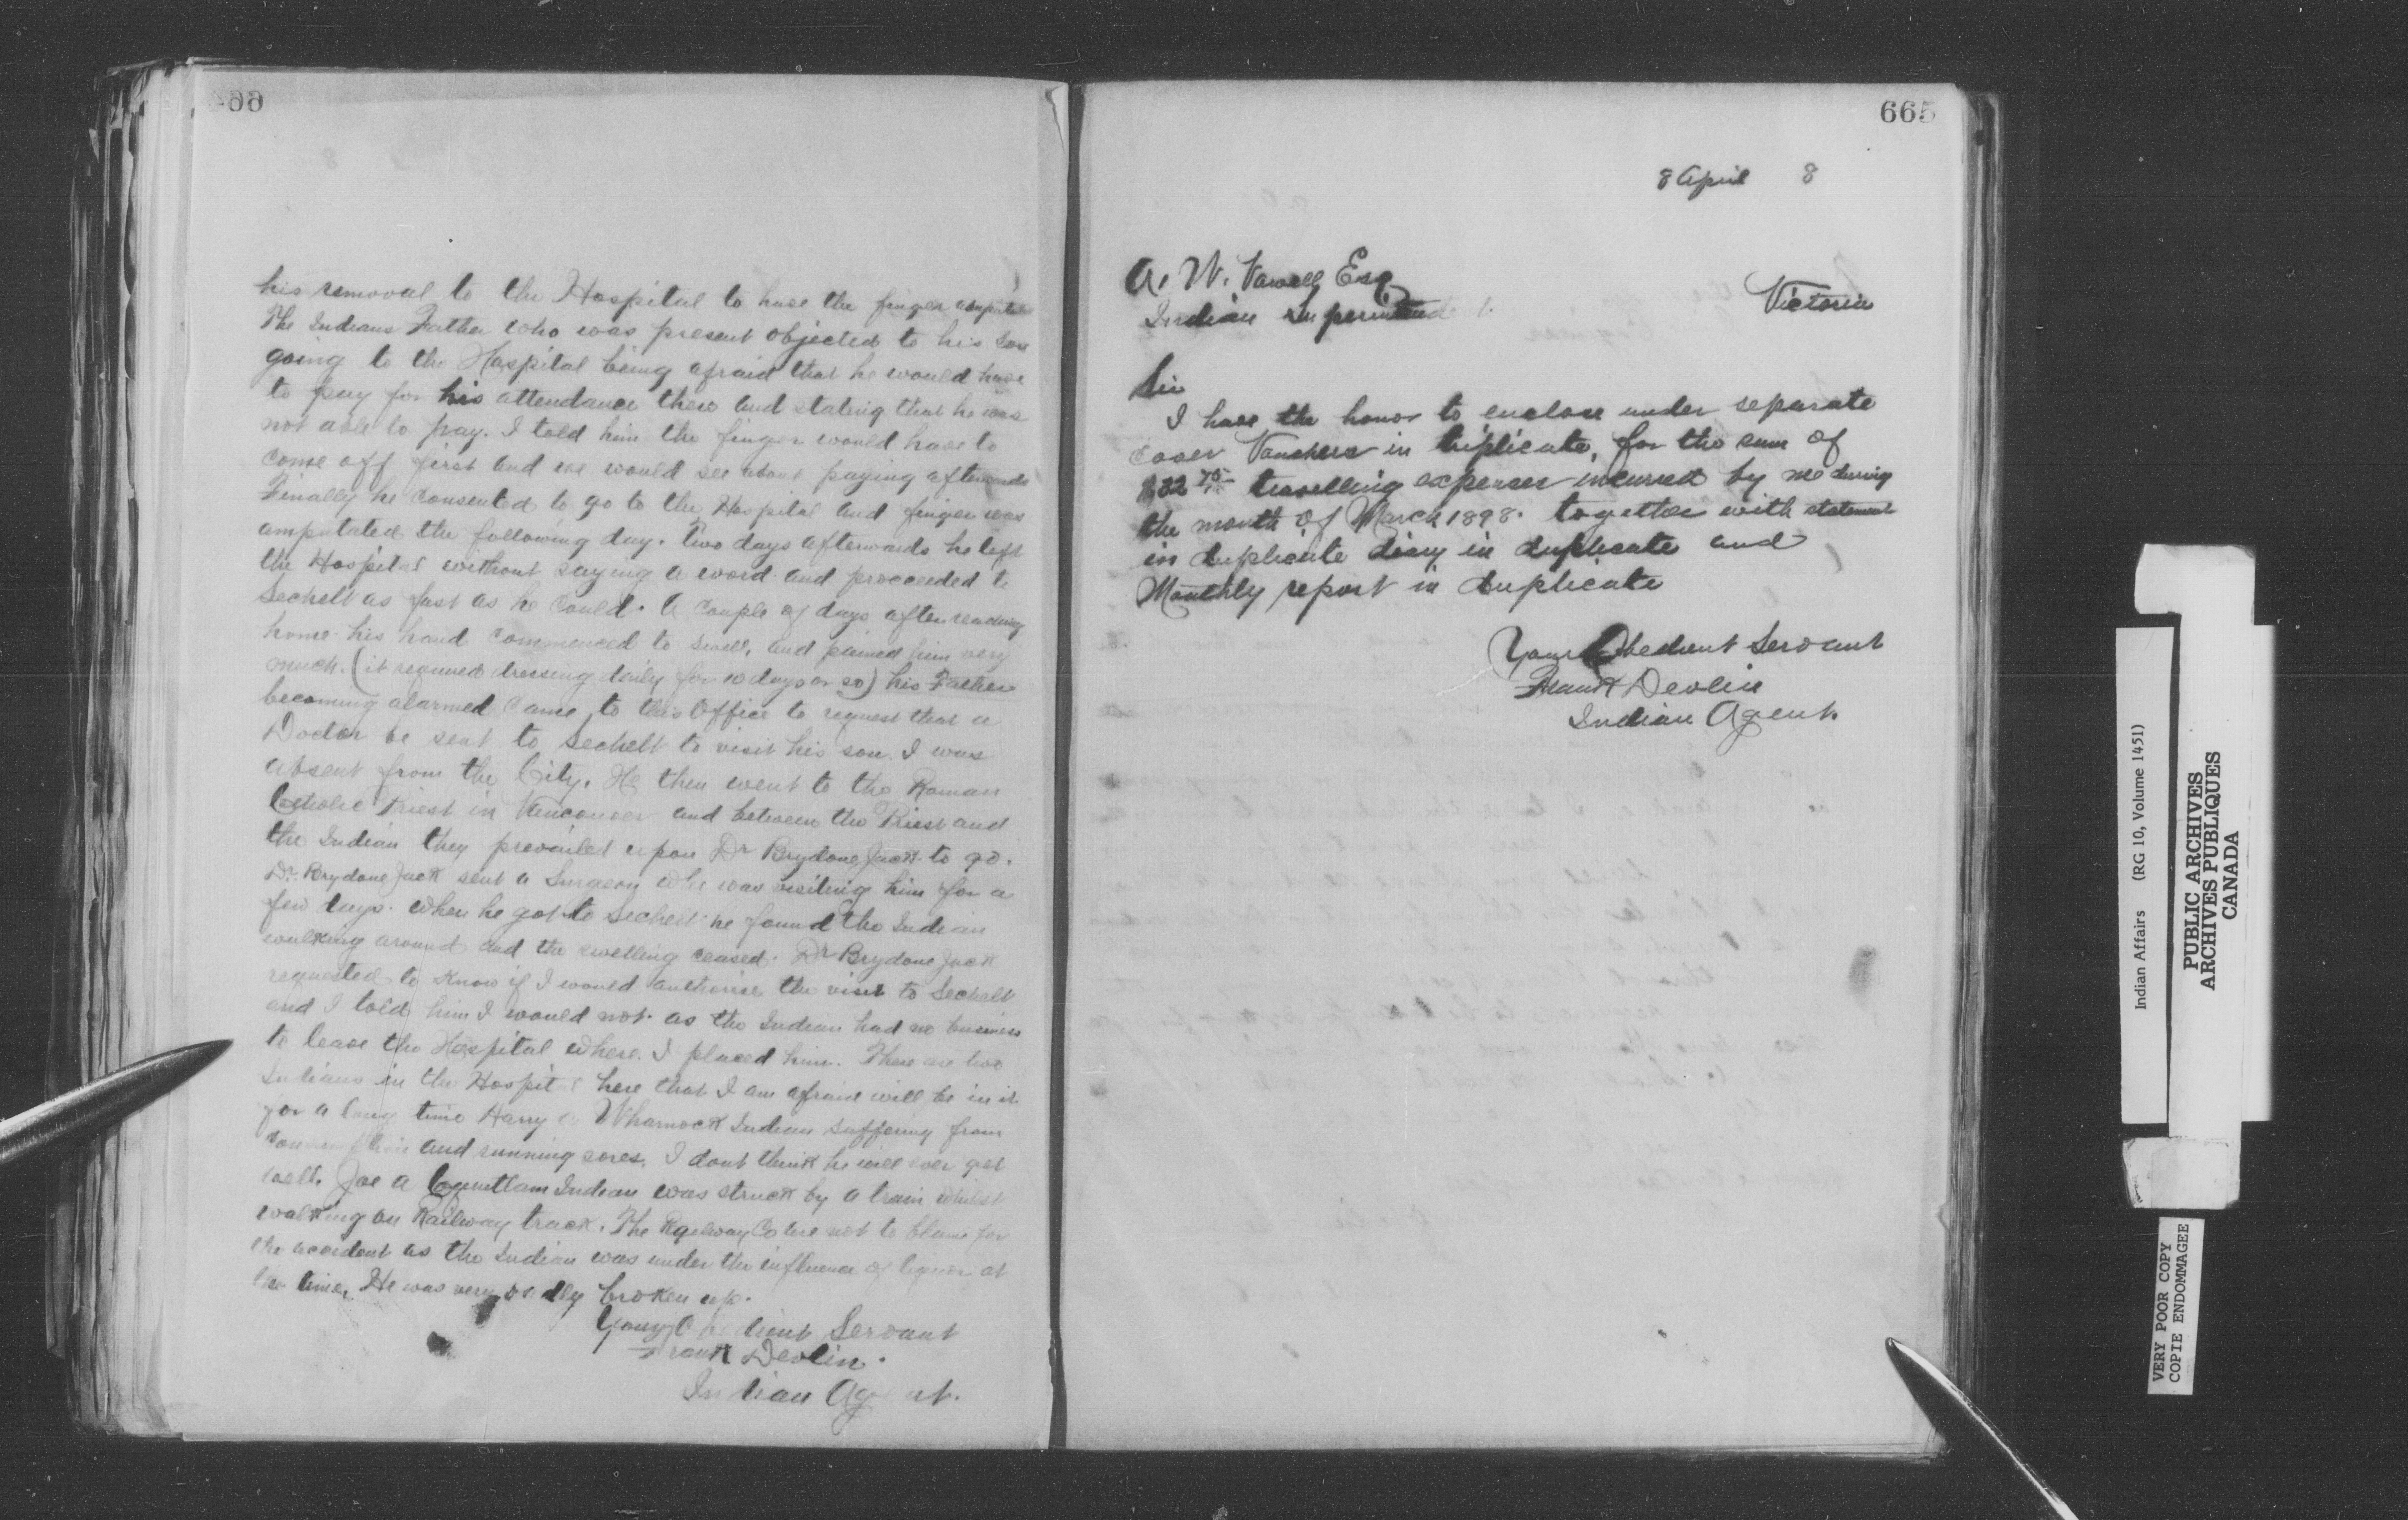 his removal to the Hospital to have the finger amputated
The Indians Father who was present objected to his Son
going to the Hospital being afraid that he would have
to pay for his attendance there and stating that he was
not able to pay. I told him the finger would have to
come off first and we would see about paying afterwards
Finally he consented to go to the Hospital and finger was
amputated the following day. Two days afterwards he left
the Hospital without saying a word and proceeded to
Sechelt as fast as he could. A couple of days after reaching
home his hand commenced to swell, and pained him very
much. (it required dressing daily for 10 days or so) his Father
becoming alarmed came to this Office to request that a
Doctor be sent to Sechelt to visit his son. I was
absent from the City. He then went to the Roman
Catholic Priest in Vancouver and between the Priest and
the Indian they prevailed upon Dr Brydone Jack to go.
Dr. Brydone Jack sent a Surgeon who was visiting him for a
few days. When he got to Sechelt he found the Indian
walking around and the swelling ceased. Dr Brydone Jack
requested to know if I would authorise the visit to Sechelt
and I told him I would not as the Indian had no business
to leave the Hospital where I placed him. There are two
Indians in the Hospital here that I am afraid will be in it
for a long time Harry a Wharnock Indian suffering from
consumption and running sores. I dont think he will ever get
well. Joe a Coquittam Indian was struck by a train whilst
walking on Railway track. The Railway Co are not to blame for
the accident as the Indian was under the influence of liquor at
the time. He was very badly broken up.
Your Obedient Servant
Frank Devlin.
Indian Agent.
665
8 April 8
A. W. Vowell Esq
Indian Superintend
Victoria
Sir
I have the honor to enclose under separate
cover Vouchers in triplicate, for the sum of
travelling expenses incurred by me during
the month of March 1898. together with statement
in duplicate diary in duplicate and
Monthly report in duplicate
Your Obedient Servant
Frank Devlin
Indian Agent.
Indian Affairs (RG 10, Volume 1451)
PUBLIC ARCHIVES
ARCHIVES PUBLIQUES
CANADA
VERY POOR COPY
COPIE ENDOMMAGEE